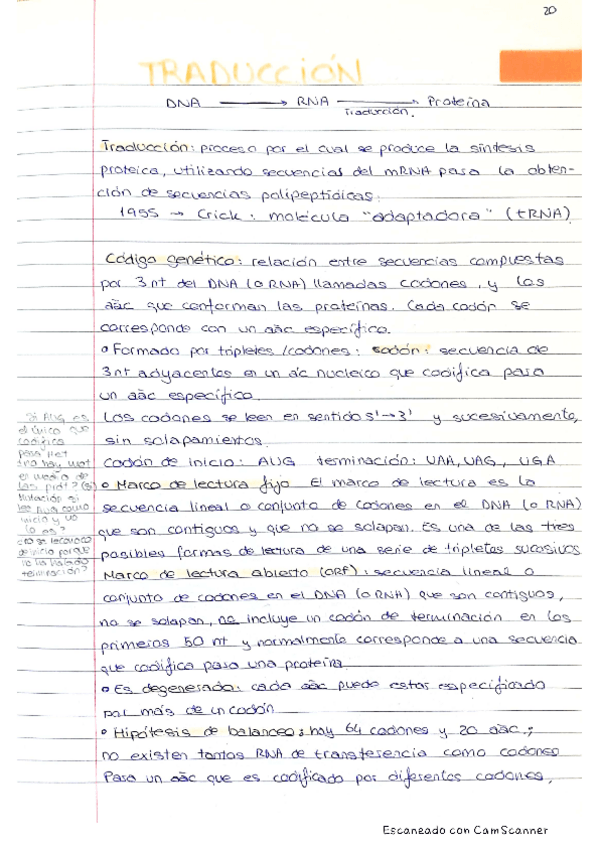 20
TRADUCCIÓN
DNA → RNA → Proteína
Traducción.
Traducción: proceso por el cual se produce la síntesis
proteica, utilizando secuencias del mRNA para la obten-
ción de secuencias polipeptídicas.
1955 → Crick: molécula "adaptadora" (tRNA)
Código genético: relación entre secuencias compuestas
por 3 nt del DNA (o RNA) llamadas codones, y los
aác que conforman las proteínas. Cada codón se
corresponde con un aác específico.
Formado por tripletes/codones: codón: secuencia de
3 nt adyacentes en un ác nucleico que codifica para
un aác específico.
Los codones se leen en sentido 5'→3' y sucesivamente,
sin solapamientos.
codón de inicio: AUG terminación: UAA, UAG, UGA
Marco de lectura fijo El marco de lectura es la
secuencia lineal o conjunto de codones en el DNA (o RNA)
que son contiguos y que no se solapan. Es una de las tres
posibles formas de lectura de una serie de tripletes sucesivos
Marco de lectura abierto (ORF): secuencia lineal o
conjunto de codones en el DNA (o RNA) que son contiguos,
no se solapan, no incluye un codón de terminación en los
primeros 50 nt y normalmente corresponde a una secuencia
que codifica para una proteína
Es degenerado: cada aác puede estar especificado
por más de un codón
Hipótesis de balanceo: hay 64 codones y 20 aác.;
no existen tantos RNA de transferencia como codones
Para un aác que es codificado por diferentes codones,
Si AUG es
el único que
codifica
para Met
no hay met
en medio de
las prot? (si)
Mutación si
lee AUG como
inicio y no
lo es?
no se reconoce
de inicio porque
no ha habido
terminación?
Escaneado con CamScanner